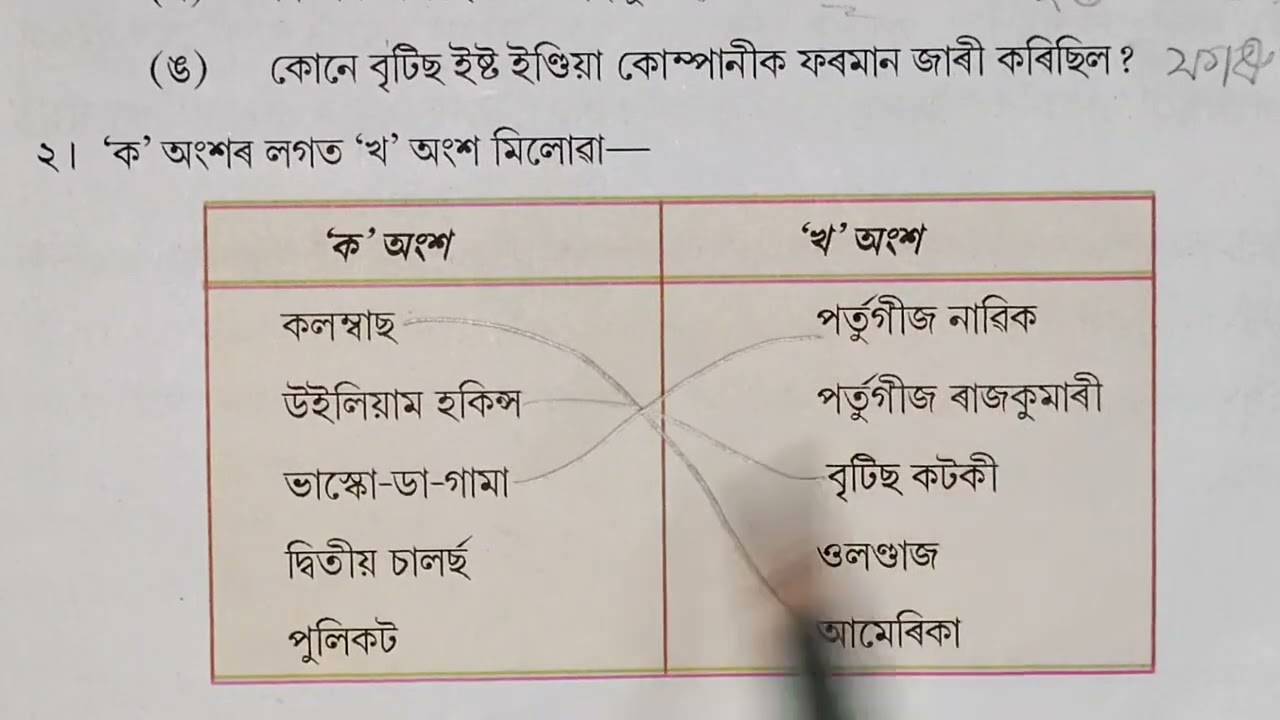 (ঙ) কোনে বৃটিছ ইষ্ট ইণ্ডিয়া কোম্পানীক ফৰমান জাৰী কৰিছিল?
২। 'ক' অংশৰ লগত 'খ' অংশ মিলোৱা—
'ক' অংশ 'খ' অংশ
কলম্বাছ পৰ্তুগীজ নাৱিক
উইলিয়াম হকিন্স পৰ্তুগীজ ৰাজকুমাৰী
ভাস্কো-ডা-গামা বৃটিছ কটকী
দ্বিতীয় চালৰ্ছ ওলণ্ডাজ
পুলিকট আমেৰিকা